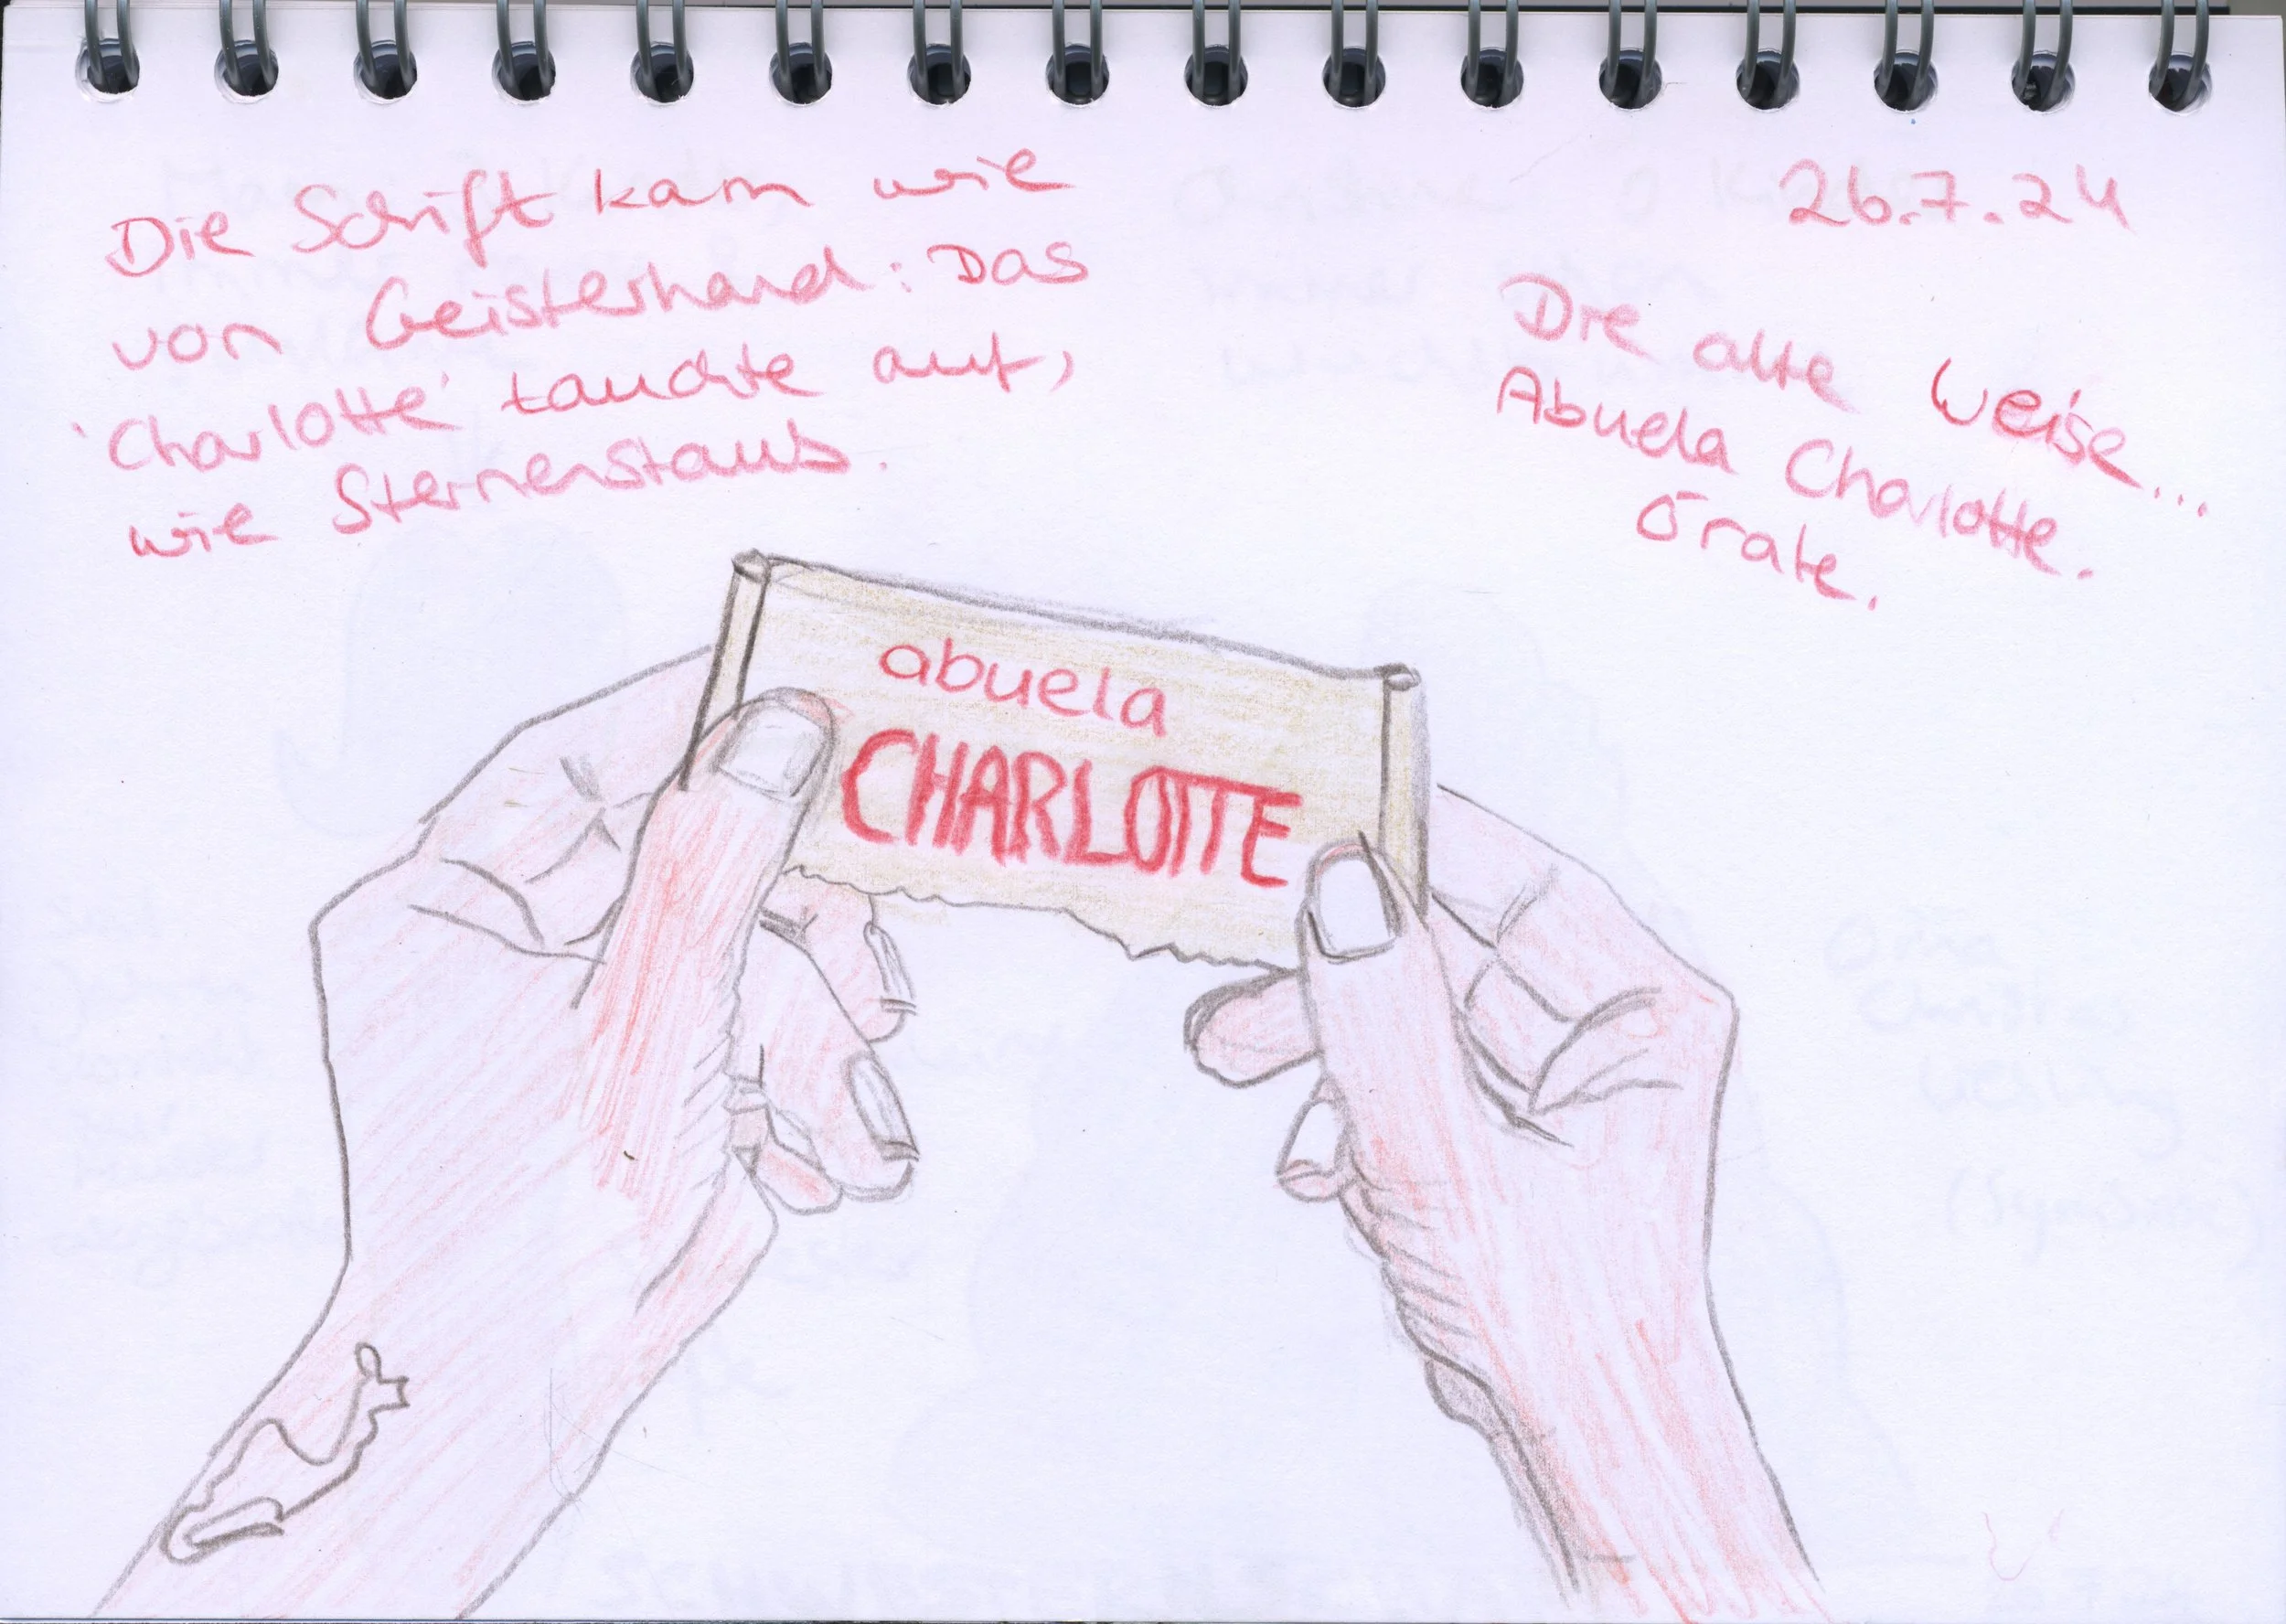 Die Schrift kam wie
von Geisterhand: Das
'Charlotte' tauchte auf,
wie Sternenstaub.
26.7.24
Die alte Weise...
Abuela Charlotte.
Örate.
abuela
CHARLOTTE